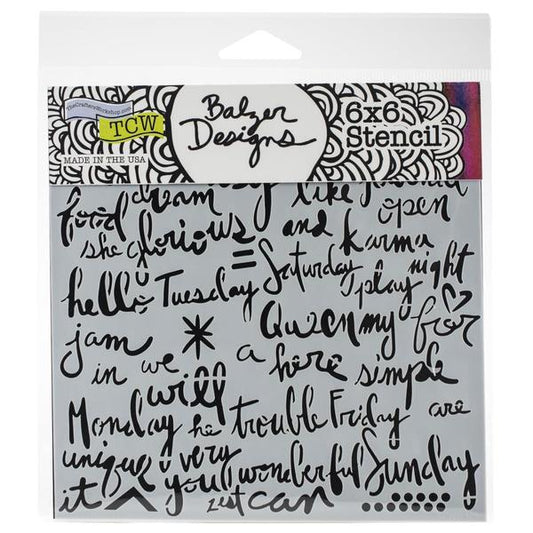 TheCraftersWorkshop.com
TCW
MADE IN THE USA
Balzer
Designs
6x6
Stencil
food dream like
open
she glorious and karma
= night
hello Tuesday Saturday play
jam * Queen my for
in we a here simple
will
Monday he trouble Friday are
unique very
it you wonderful Sunday
zest can